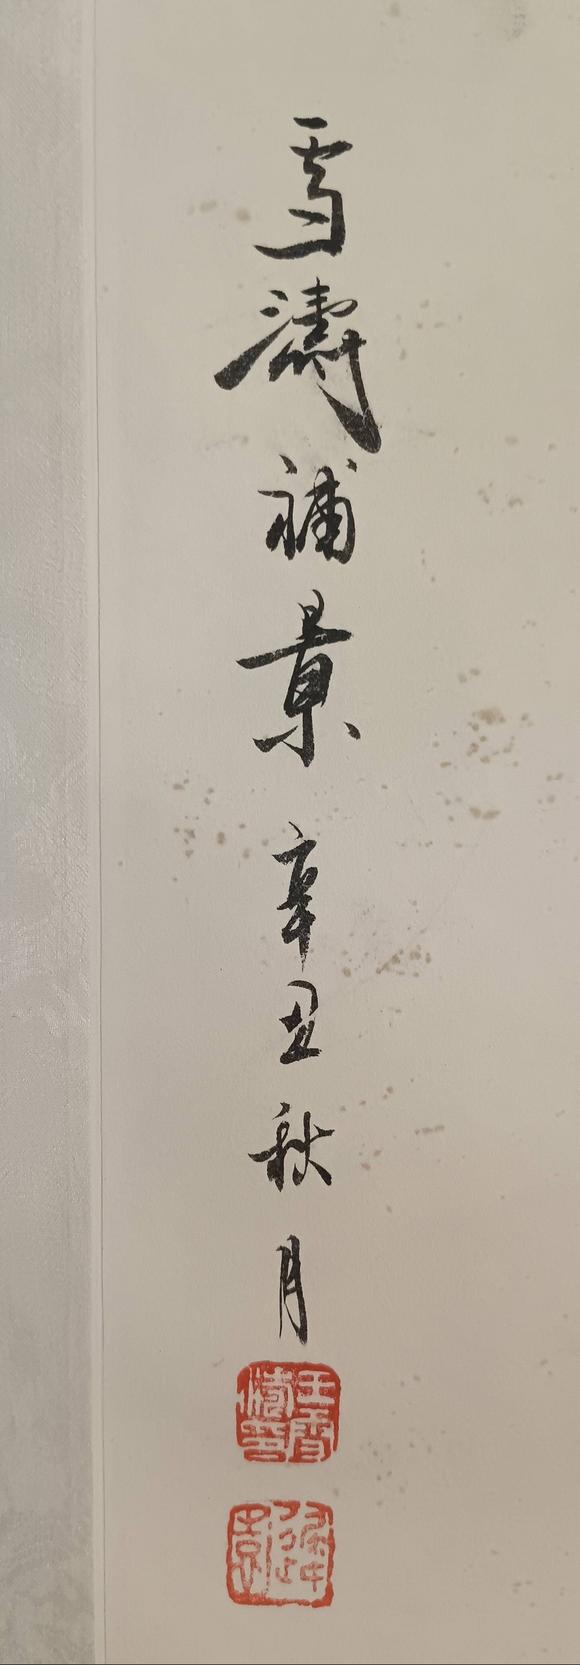 雪濤補景辛丑秋月
王雪濤印
遲園